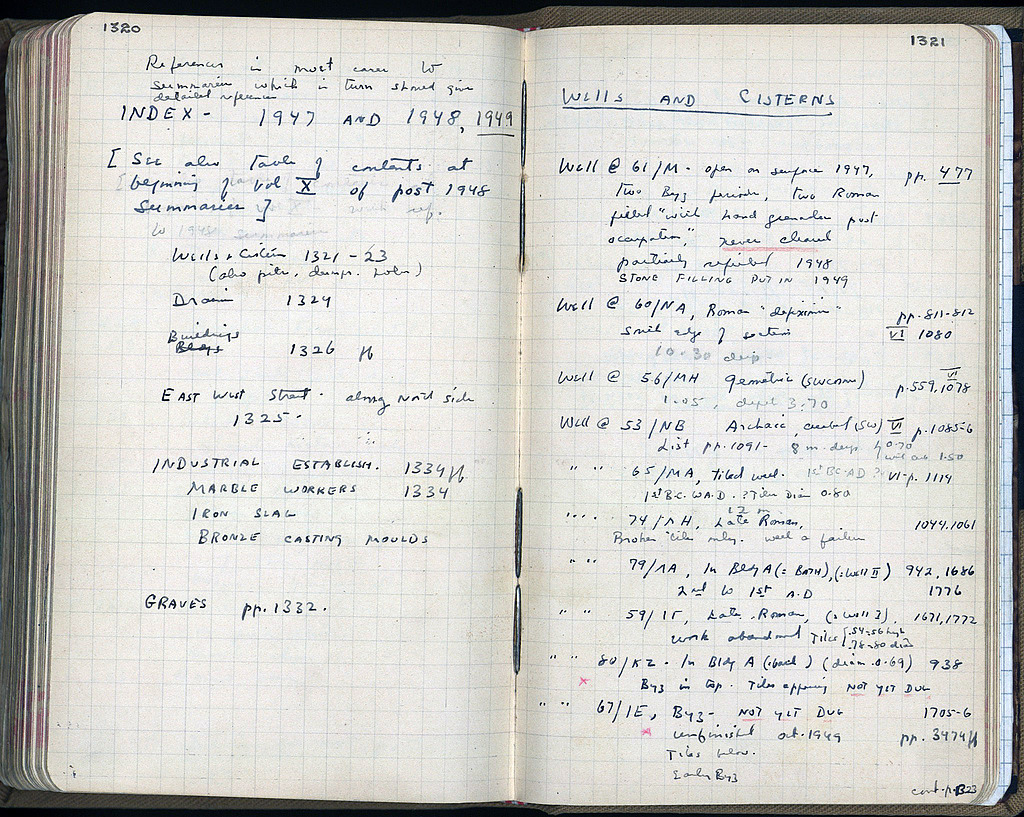 1320
References in most cases to
summaries which in turn should give
detailed reference
INDEX - 1947 AND 1948, 1949
[ See also Table of contents at
beginning of vol X of post 1948
Summaries ]
to 1948 summaries
Wells + Cisterns 1321 - 23
(also pits, dumps, holes)
Drains 1324
Buildings
Bldgs 1326 ff
EAST WEST Street - along North side
1325.
INDUSTRIAL ESTABLISH. 1334 ff
MARBLE WORKERS 1334
IRON SLAG
BRONZE CASTING MOULDS
GRAVES pp. 1332.
1321
WELLS AND CISTERNS
Well @ 61/M - open on surface 1947, pp. 477
two Byz periods, two Roman
filled "with hand grenades post
occupation," never cleared
partially refilled 1948
STONE FILLING PUT IN 1949
Well @ 60/NA, Roman "defixion" pp. 811-812
south edge of section VI 1080
10.30 deep.
Well @ 56/MH Geometric (SW corner) VI p. 559, 1078
1.05, depth 3.70
Well @ 53/NB Archaic, (SW) VI p. 1085-6
List pp. 1091- 8 m. deep 0.70
1.50
" " 65/MA, tiled well. 1st BC-AD ? VI - p. 1114
1st B.C. A.D. ? Tiles Diam 0.80
12 m
" " 74/MH, Late Roman, 1044, 1061
Broken tiles only. well a failure
" " 79/NA, In Bldg A (= BATH), (= Well II) 942, 1686
2nd to 1st A.D 1776
" " 59/IT, Late Roman, (= Well 3). 1671, 1772
work abandoned Tiles .54-56 high
.78-80 diam
" " 80/KZ - In Bldg A (= bath) (diam. 0.69) 938
x Byz in top. Tiles appearing NOT YET DUG
" " 67/IE, Byz - NOT YET DUG 1705-6
x unfinished Oct. 1949 pp. 3474 ff
Tiles below.
Early Byz
cont. p. 1323